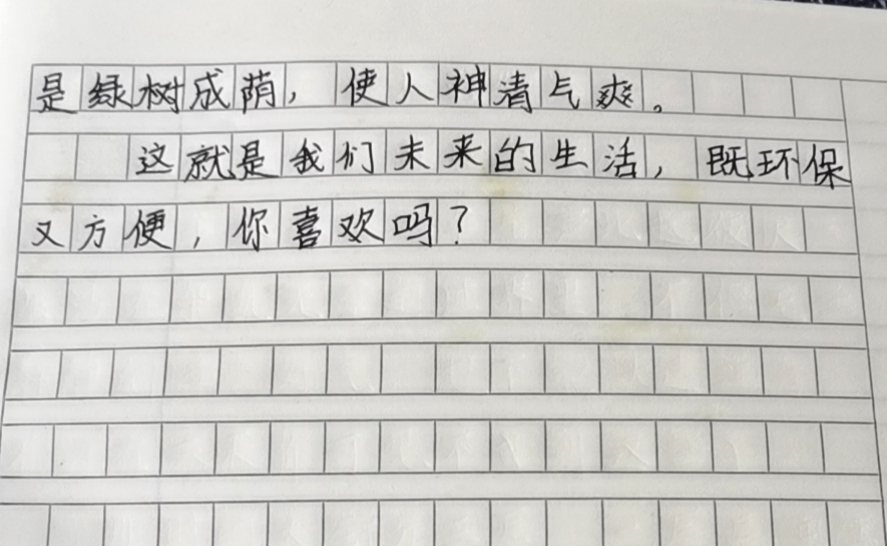 是绿树成荫，使人神清气爽。
这就是我们未来的生活，既环保
又方便，你喜欢吗？